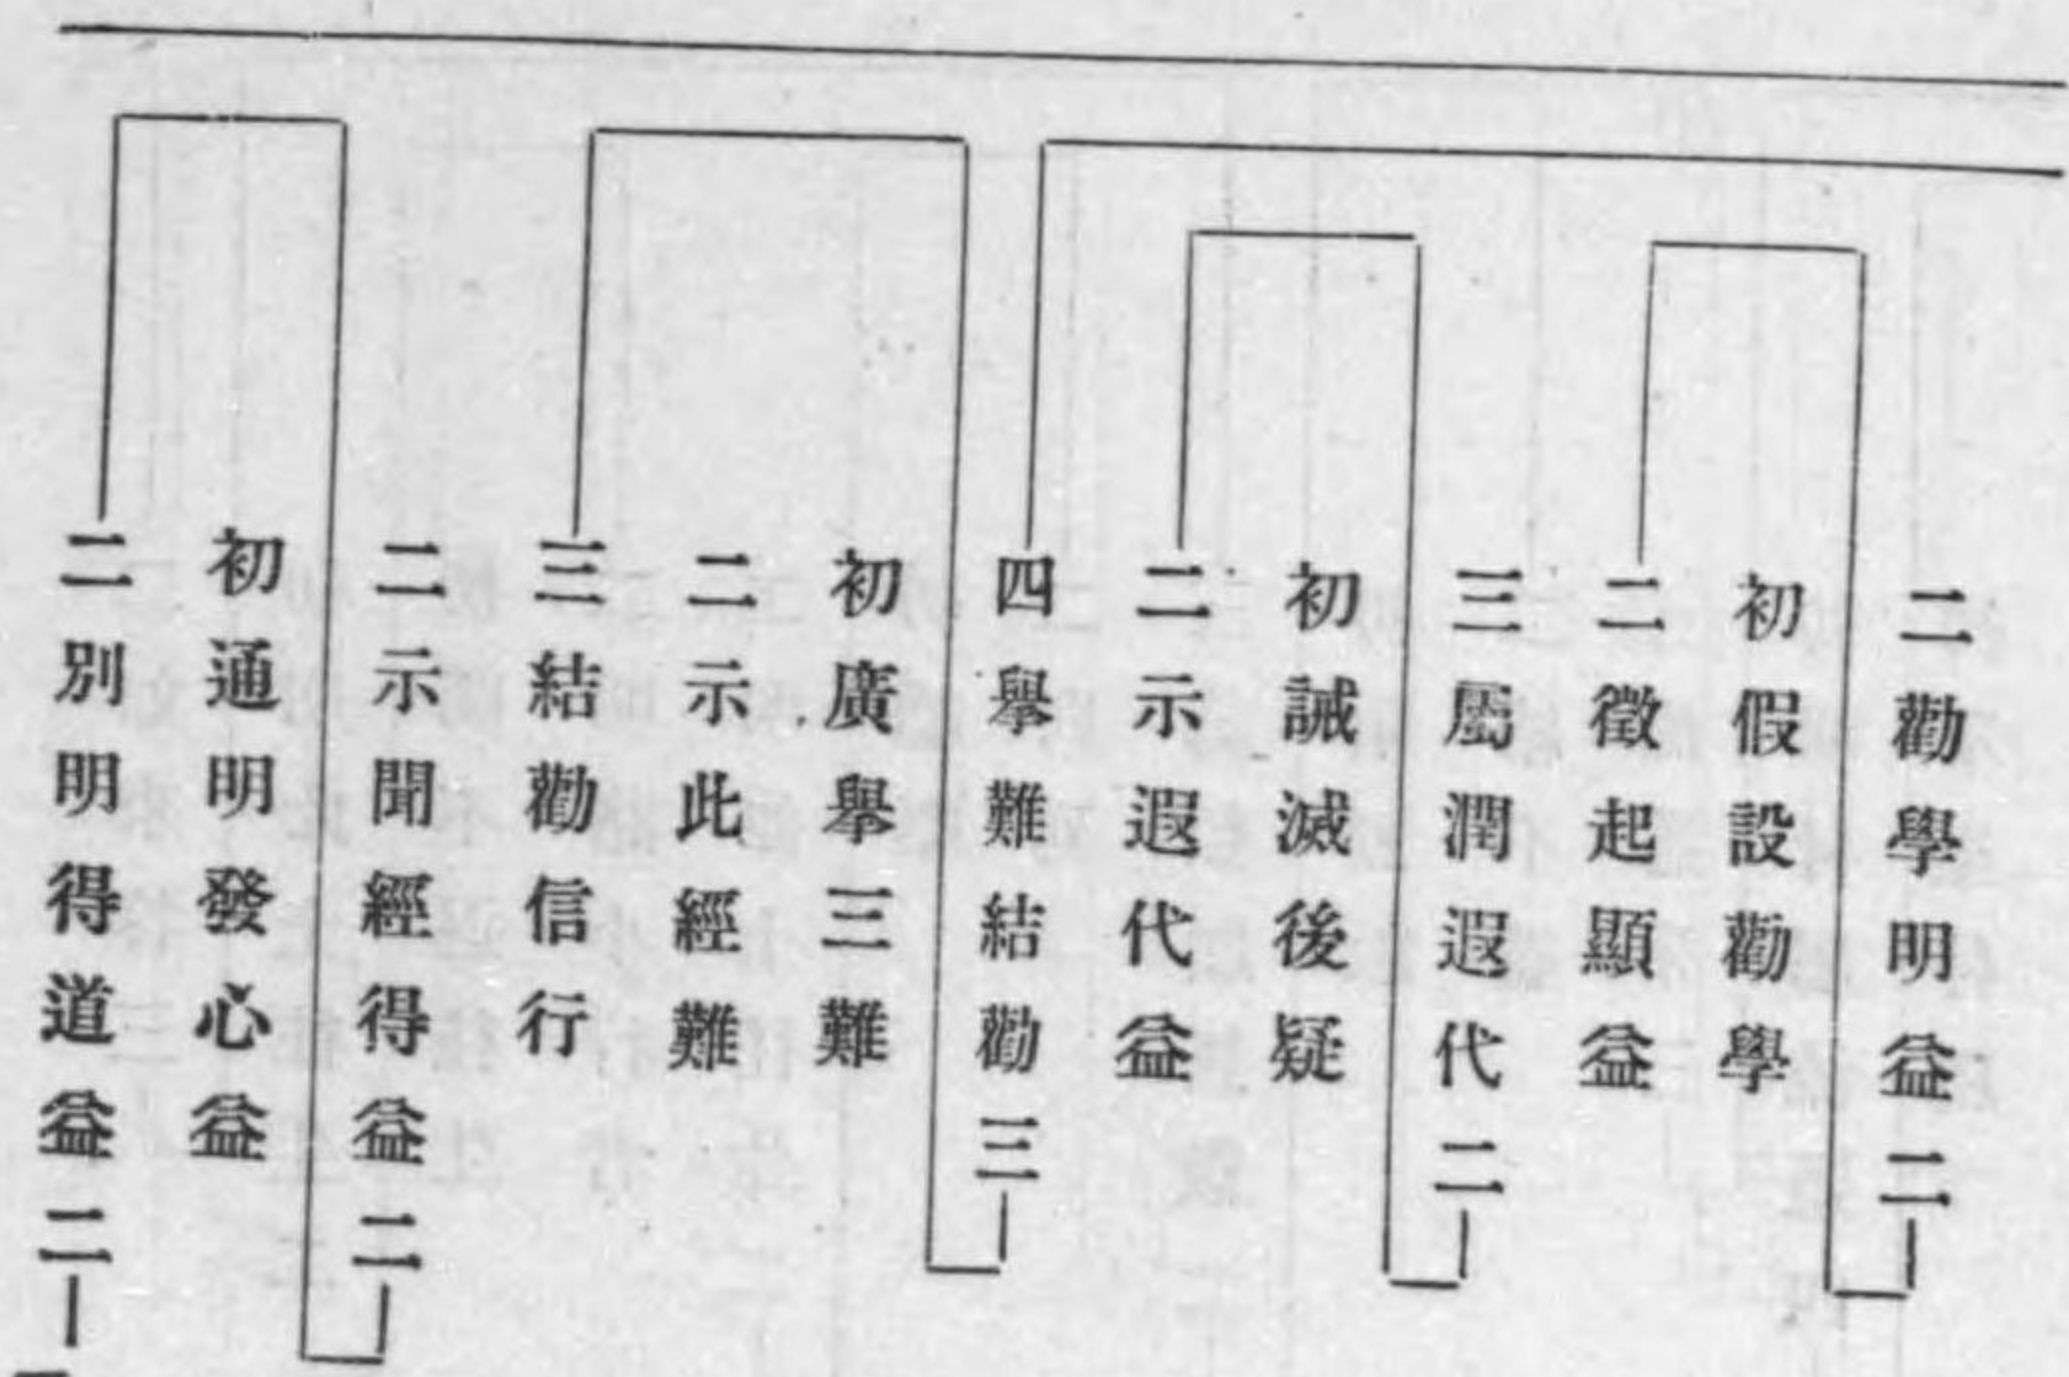 二勸學明益二
初假設勸學
二徵起顯益
三屬潤遐代二
初誡滅後疑
二示遐代益
四擧難結勸三
初廣擧三難
二示此經難
三結勸信行
二示聞經得益二
初通明發心益
二別明得道益二